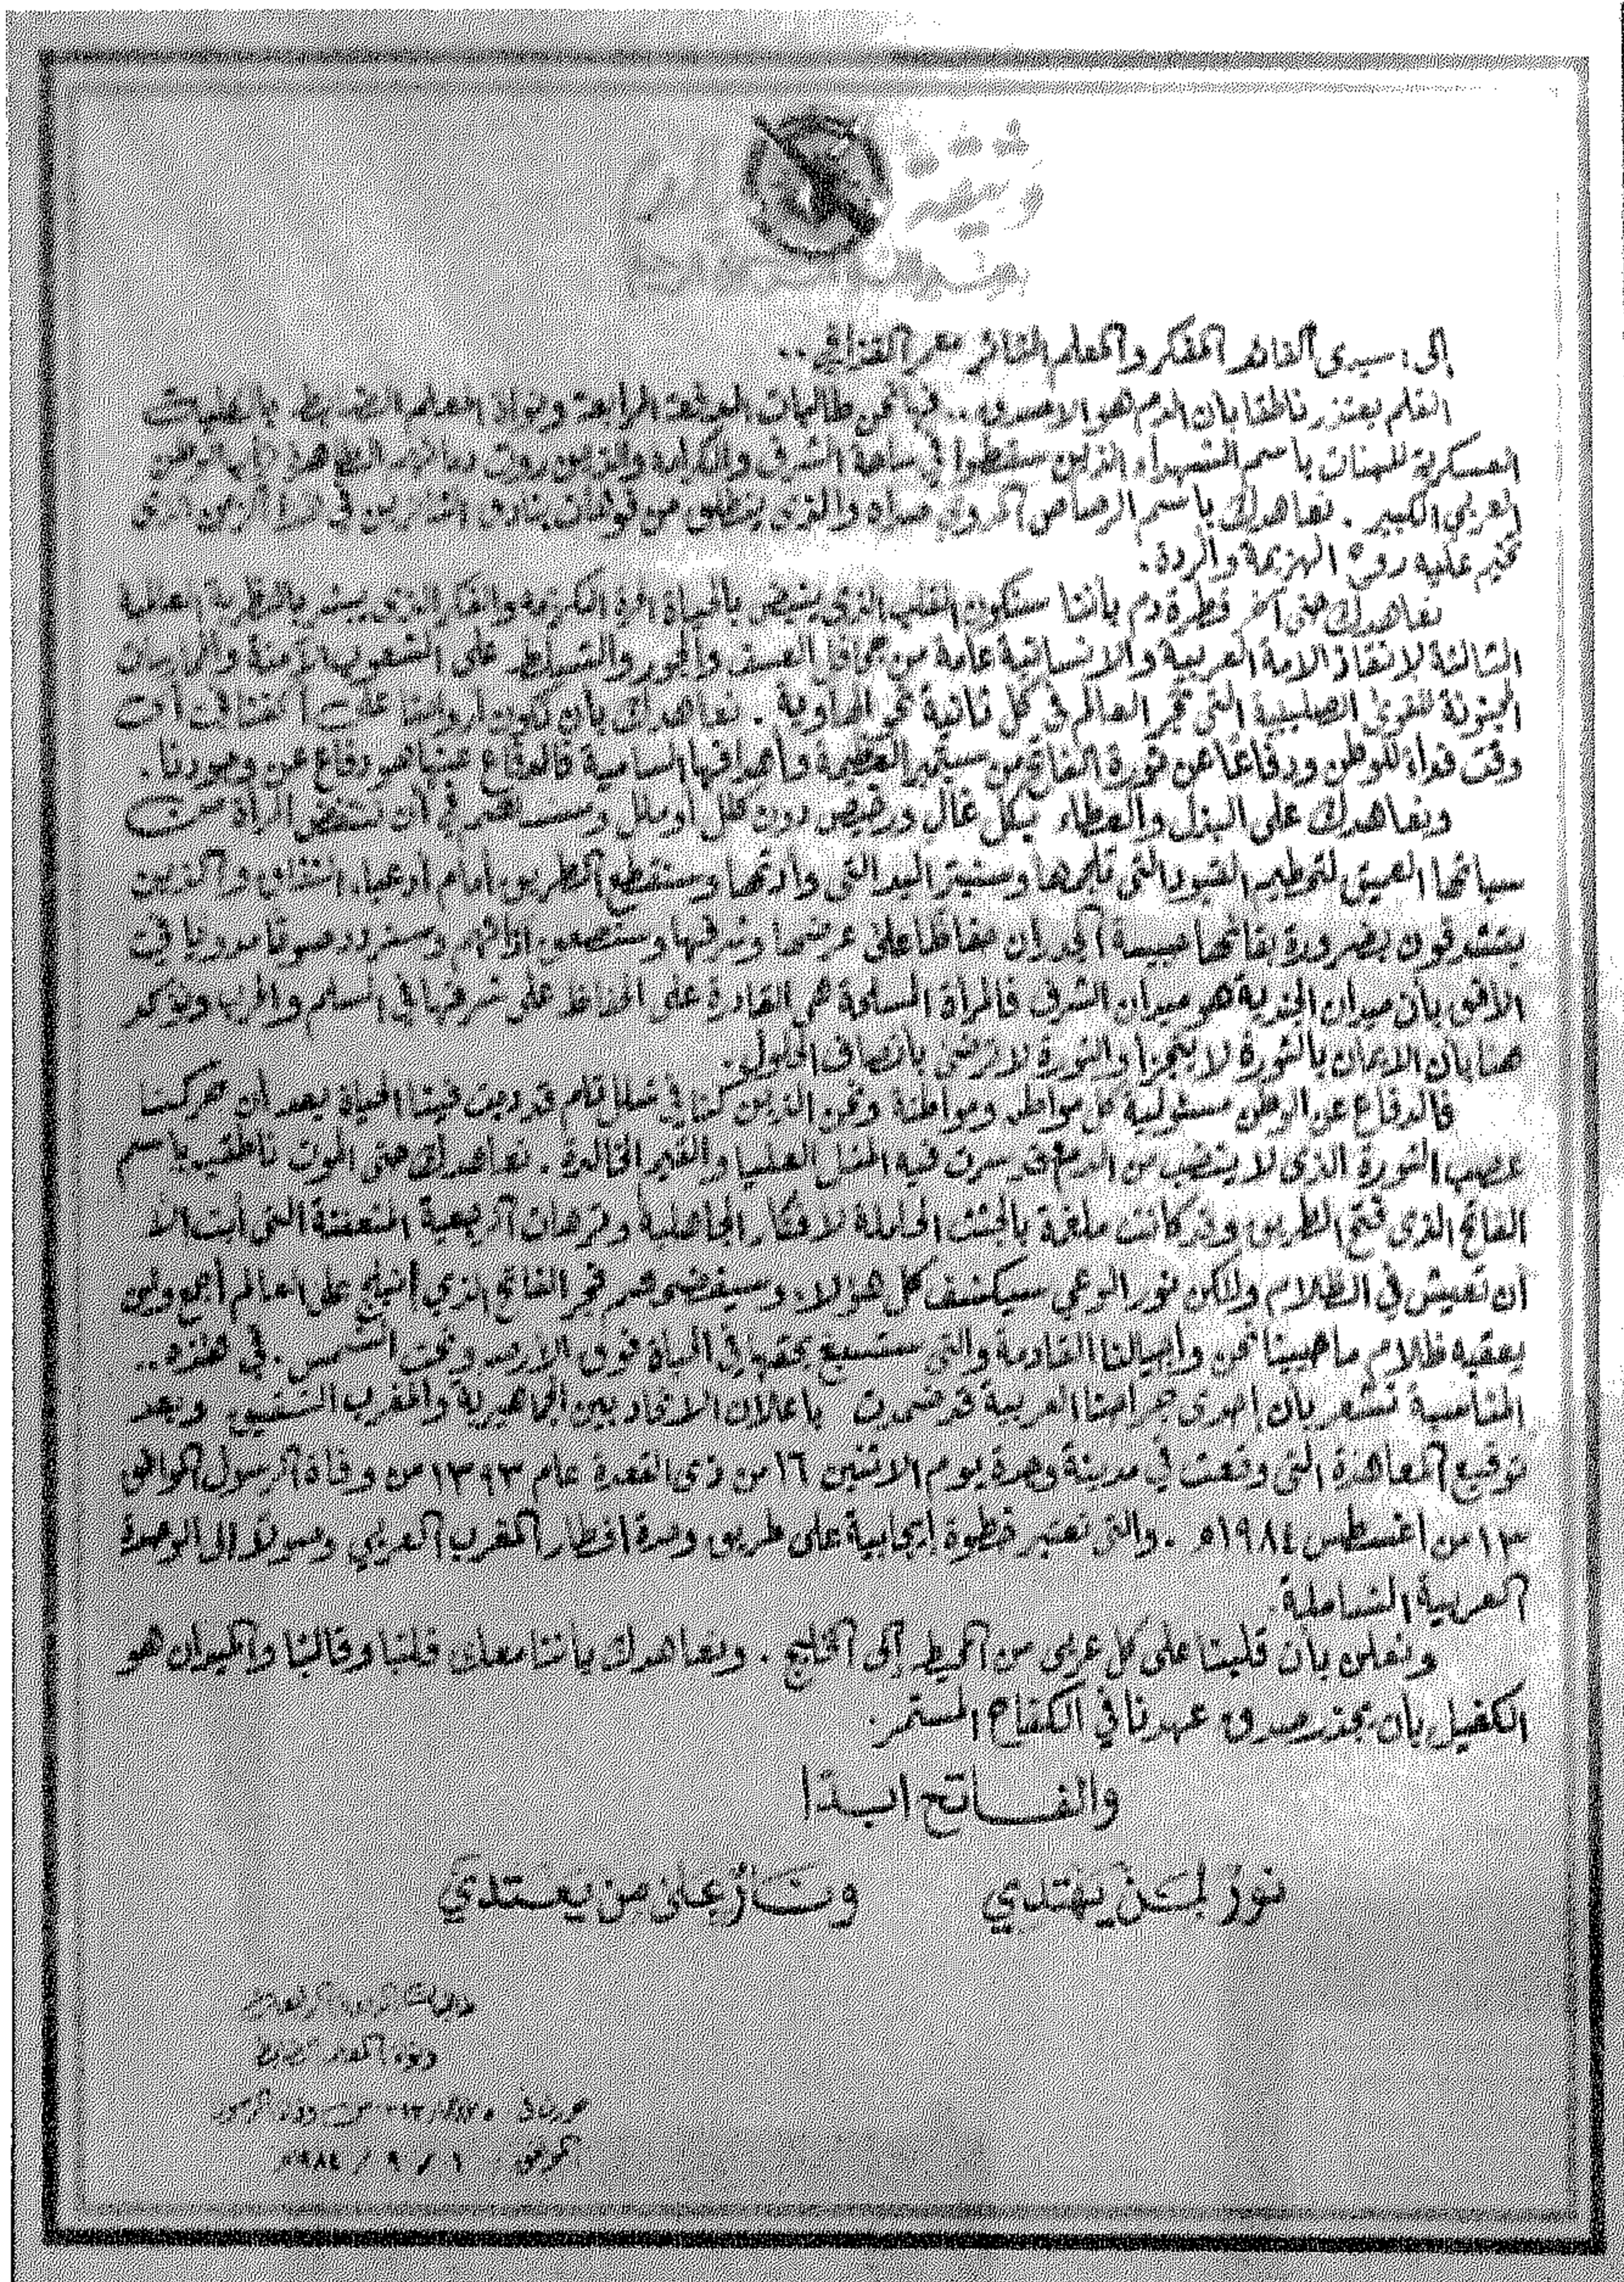 إلى: سيدى القائد المفكر والمعلم الثائر معمر القذافي..
القلم يعتزر ناطقا بان الدم هو الاصدق.. نحن طالبات الدفعة الرابعة ونواة المعلم الضابط بالكلية
العسكرية للبنات باسم الشهداء الذين سقطوا في ساحة الشرف والكرامة والذين روت دمائهم
العربي الكبير. نعاهدك باسم الرصاص المدوي صداه والذى ينطلق من فوهات بنادق الثائرين في الذى
تخيم عليه روح الهزيمة والردة.
نعاهدك حتى آخر قطرة دم بأننا سنكون القلب الذى ينبض بالحياة الحرة الكريمة والفكر الذى يبشر بالنظرية العالمية
الثالثة لإنقاذ الامة العربية والانسانية عامة من جحافل العسف والجور والتسلط على الشعوب الآمنة
للقوى الصليبية التى تجر العالم في كل ثانية نحو الهاوية. نعاهدك بأن تكون ارواحنا على اكفنا في أي
وقت فداء للوطن ودفاعا عن ثورة الفاتح من سبتمبر العظيمة وأهدافها السامية فالدفاع عنها هو دفاع عن وجودنا.
ونعاهدك على البذل والعطاء بكل غال ورخيص دون كلل أو ملل وسنساهم في أن تستيقظ المرأة من
سباتها العميق لتحطيم القيود التى تلجمها وسنبتر اليد التى وأدتها وسنقطع الطريق أمام ادعياء والذين
يتشدقون بضرورة بقائها حبيسة الجدران حفاظا على عرضها وشرفها وسنصم آذانهم وسنردد صوتا مدويا في
الأفق بأن ميدان الجندية هو ميدان الشرف فالمرأة المسلحة هي القادرة على الحفاظ على شرفها في السلم والحرب ونؤكد
هنا بأن الايمان بالثورة لا يتجزأ والثورة لا ترضى بانصاف الحلول.
فالدفاع عن الوطن مسئولية كل مواطن ومواطنة ونحن الذين كنا في قد دبت فينا الحياة بعد أن حركتنا
الثورة الذى لا ينضب من الدم قد سرت فيه المثل العليا والقيم الخالدة. نعاهدك حتى الموت ناطقين باسم
الفاتح الذى فتح الطريق وقد كانت ملغمة بالجثث الحاملة لافكار الجاهلية وترهات الرجعية المتعفنة التى أبت الا
أن تعيش في الظلام ولكن نور الوعي سيكشف كل هؤلاء وسيفضحهم فجر الفاتح الذي انبلج على العالم أجمع ولن
يعقبه ظلام ما حيينا نحن واجيالنا القادمة والتى ستستمتع بحقها في الحياة فوق الأرض وتحت الشمس. في هذه..
المناسبة نشعر بأن إحدى جراحنا العربية قد ضمدت باعلان الاتحاد بين الجماهيرية والمغرب الشقيق وبعد
توقيع المعاهدة التى وقعت في مدينة وجدة يوم الاثنين ١٦ من ذى القعدة عام ١٣٩٣ من وفاة الرسول الموافق
١٣ من اغسطس ١٩٨٤م. والتى تعتبر خطوة إيجابية على طريق وحدة اقطار المغرب العربي وصولا إلى الوحدة
العربية الشاملة.
ونعلن بأن قلبنا على كل عربى من المحيط إلى الخليج. ونعاهدك بأننا معك قلبا وقالبا والميدان هو
الكفيل بأن يجذر صدق عهدنا في الكفاح المستمر.
والفاتح ابدا
نور لمن يهتدي ونار على من يعتدي
الموافق ١ / ٩ / ١٩٨٤م